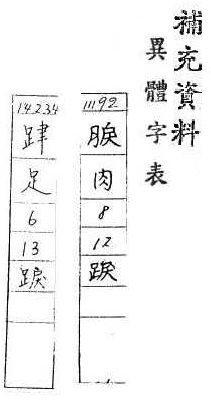 補充資料
異體字表
11192
脧
肉
8
12
踆
14234
踺
足
6
13
踆